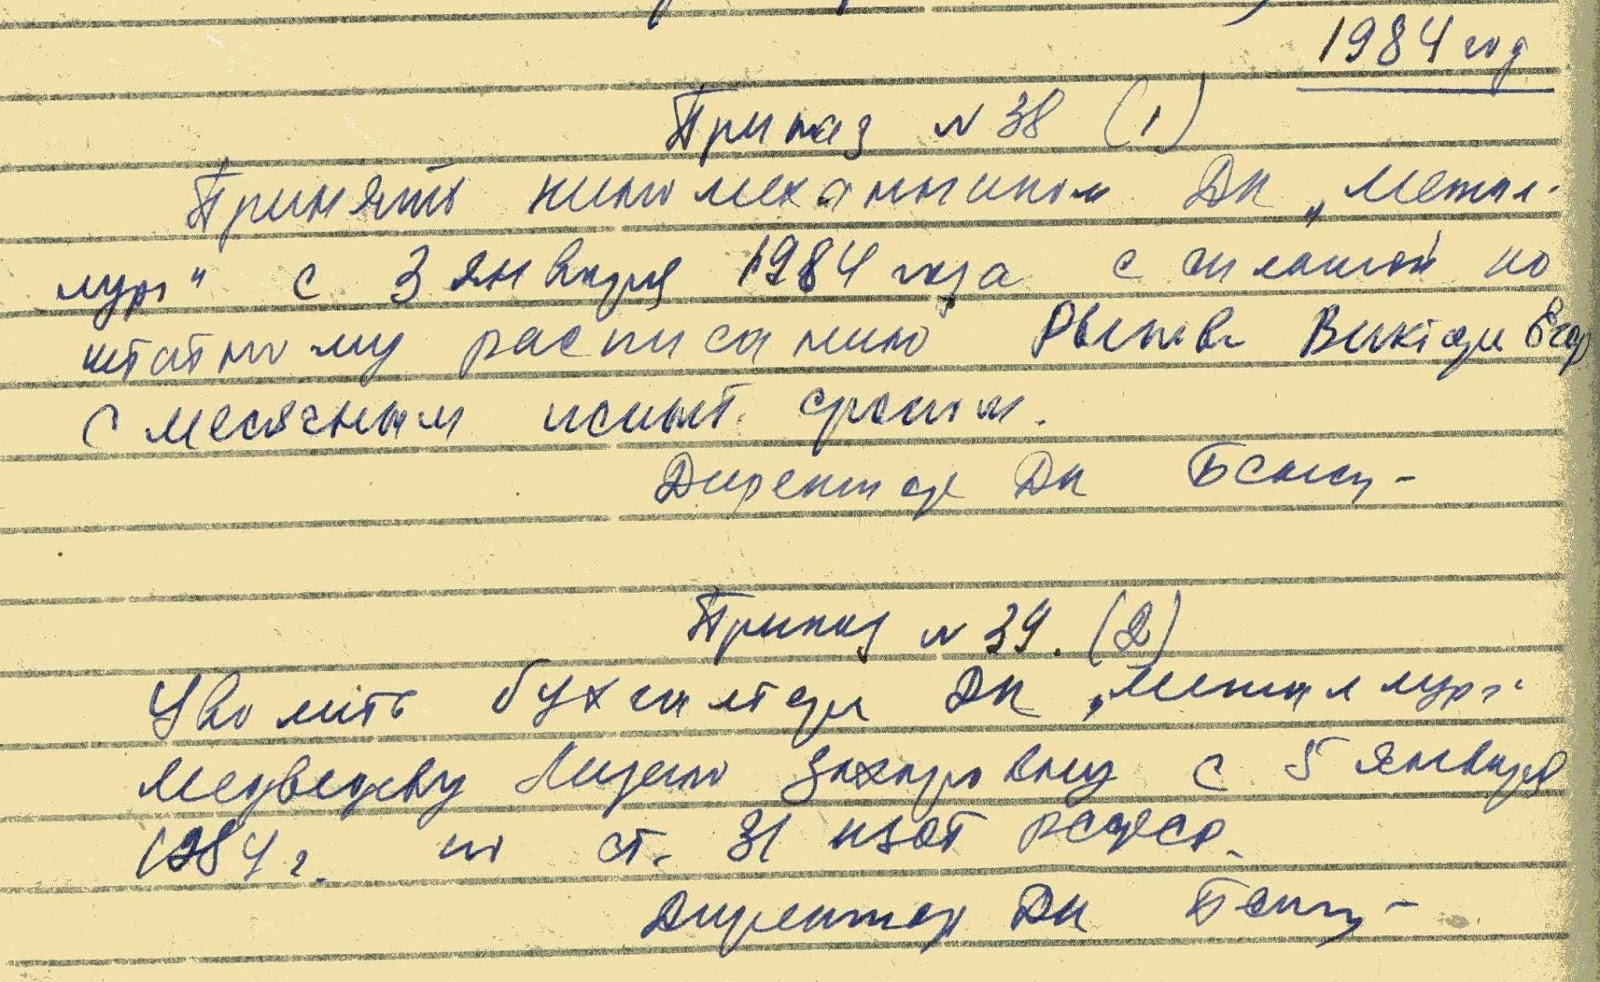 1984 год
Приказ № 38 (1)
Принять киномехаником ДК „Метал-
лург" с 3 января 1984 года с оплатой по
штатному расписанию Виктора Егор
с месячным испыт. сроком.
Директор ДК
Приказ № 39. (2)
Уволить бухгалтера ДК „Металлург"
Медведеву Лидию Захаровну с 5 января
1984 г. по ст. 31 КЗОТ РСФСР.
Директор ДК